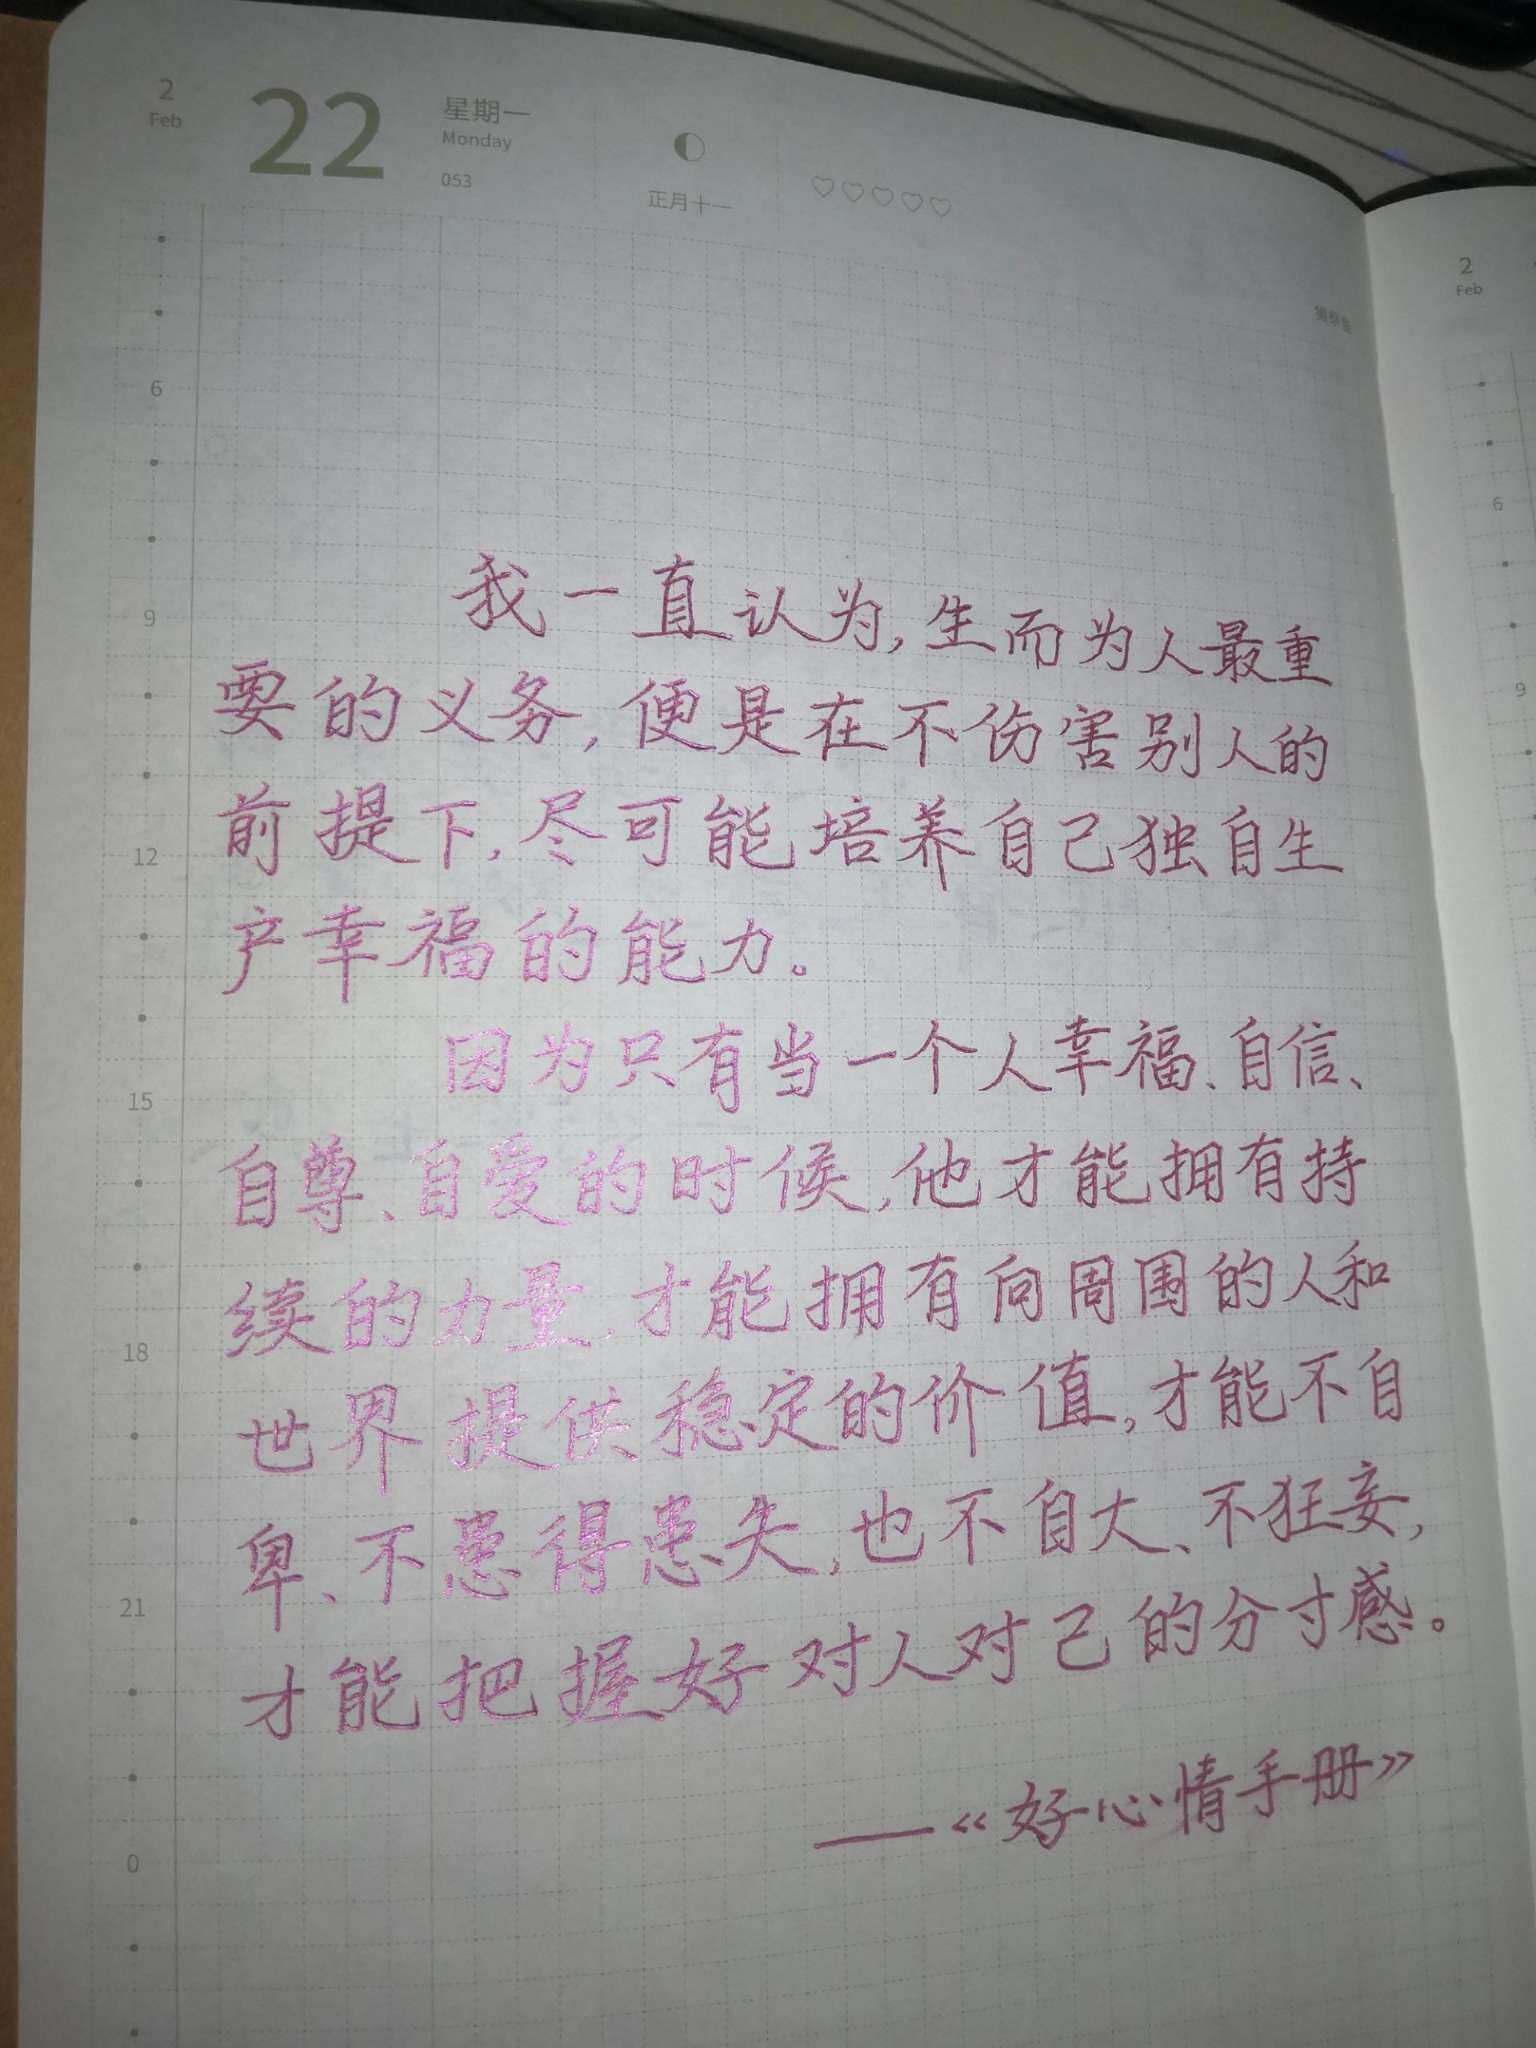 2
Feb
22
星期一
Monday
053
正月十一
2
Feb
6
9
12
15
18
21
0
6
9
我一直认为,生而为人最重
要的义务,便是在不伤害别人的
前提下,尽可能培养自己独自生
产幸福的能力。
因为只有当一个人幸福、自信、
自尊、自爱的时候,他才能拥有持
续的力量,才能拥有向周围的人和
世界提供稳定的价值,才能不自
卑、不患得患失,也不自大、不狂妄,
才能把握好对人对己的分寸感。
——《好心情手册》